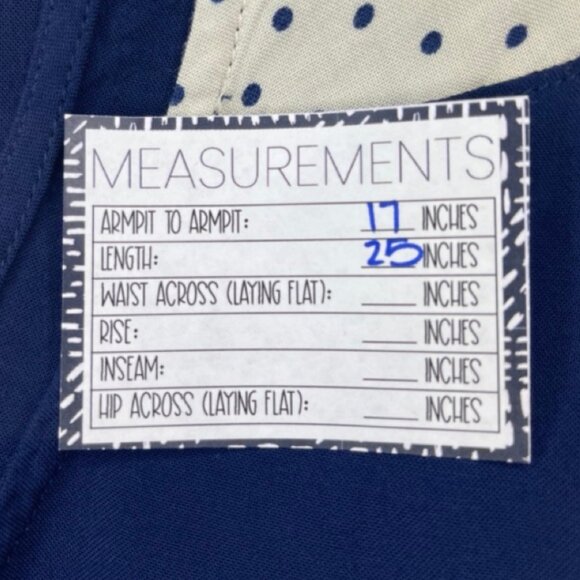 MEASUREMENTS
ARMPIT TO ARMPIT: 17 INCHES
LENGTH: 25 INCHES
WAIST ACROSS (LAYING FLAT): ____ INCHES
RISE: ____ INCHES
INSEAM: ____ INCHES
HIP ACROSS (LAYING FLAT): ____ INCHES